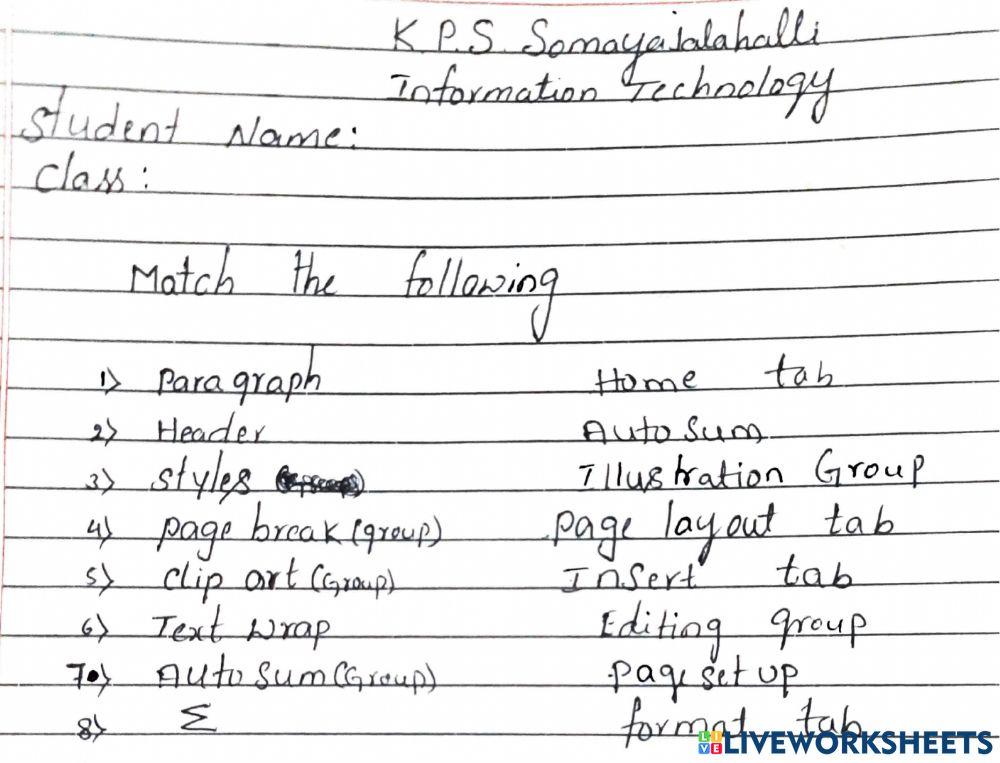 K.P.S. Somayajalahalli
Information Technology
Student Name:
Class:
Match the following
1) Paragraph Home tab
2) Header Auto Sum
3) Styles Illustration Group
4) Page break (group) Page layout tab
5) Clip art (Group) Insert tab
6) Text Wrap Editing group
7) Auto Sum (Group) Page set up
8) Σ format tab
LIVEWORKSHEETS